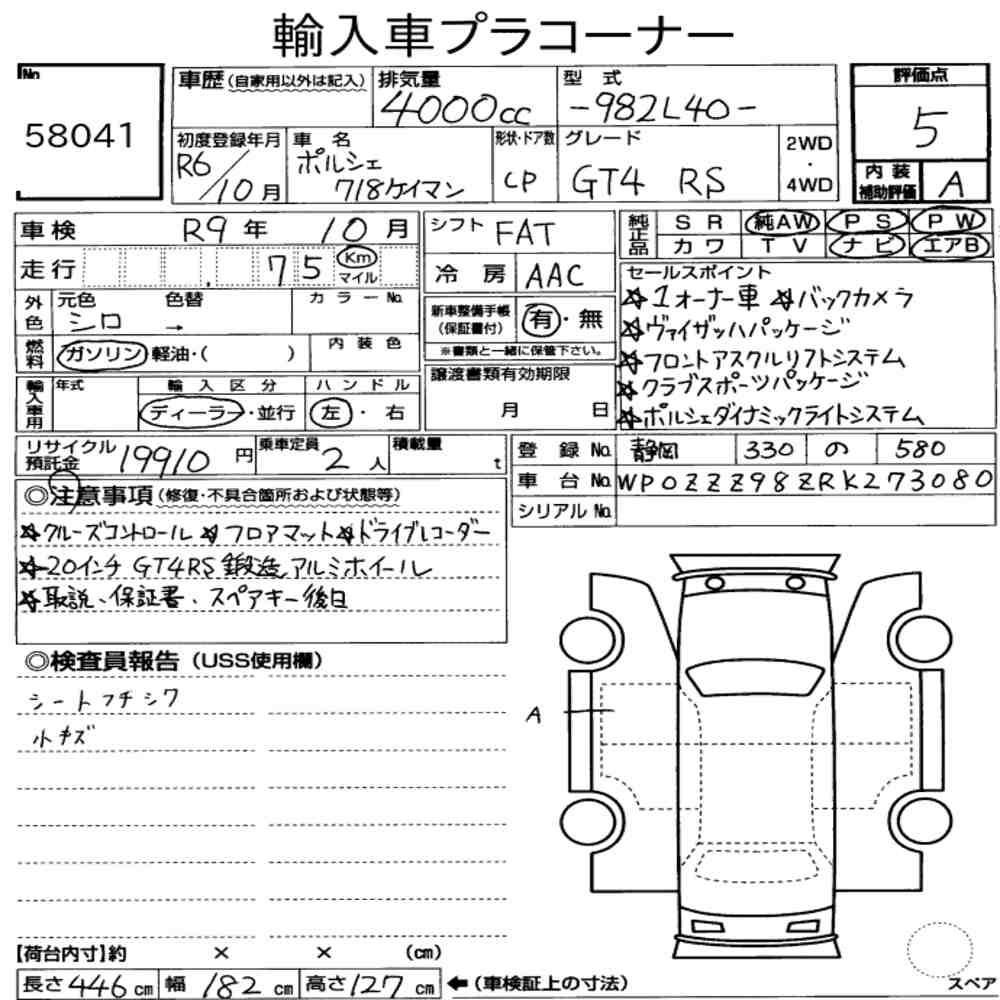 輸入車プラコーナー
No
58041
車歴(自家用以外は記入)
排気量
4000cc
型式
-982L40-
評価点
5
初度登録年月
R6/10月
車名
ポルシェ
718ケイマン
形状・ドア数
CP
グレード
GT4 RS
2WD
・
4WD
内装
補助評価
A
車検 R9年 10月
シフト FAT
純正品
SR 純AW PS PW
カワ TV ナビ エアB
走行 75 Km
マイル
冷房 AAC
外色
元色 色替 カラーNo.
シロ →
新車整備手帳
(保証書付)
有・無
※書類と一緒に保管下さい。
燃料
ガソリン 軽油・( )
内装色
輸入車用
年式
輸入区分
ディーラー・並行
ハンドル
左・右
譲渡書類有効期限
月 日
セールスポイント
☆1オーナー車 ☆バックカメラ
☆ヴァイザッハパッケージ
☆フロントアスクルリフトシステム
☆クラブスポーツパッケージ
☆ポルシェダイナミックライトシステム
リサイクル
預託金 19910円
乗車定員 2人
積載量 t
登録No. 静岡 330 の 580
車台No. WP0ZZZ98ZRK273080
シリアルNo.
◎注意事項(修復・不具合箇所および状態等)
☆クルーズコントロール ☆フロアマット☆ドライブレコーダー
☆20インチ GT4RS 鍛造アルミホイール
☆取説、保証書、スペアキー後日
◎検査員報告(USS使用欄)
シートフチシワ
小キズ
A
【荷台内寸】約 × × (cm)
長さ446cm 幅182cm 高さ127cm ←(車検証上の寸法)
スペア